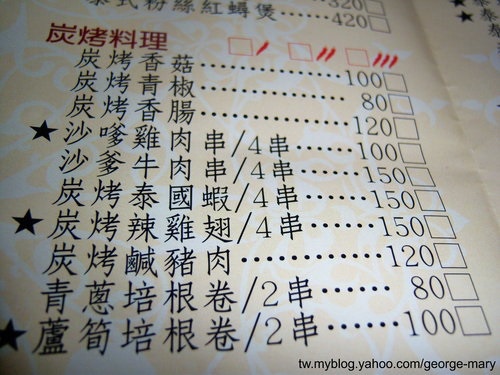 320□
泰式粉絲紅蟳煲……420□
炭烤料理
炭烤香菇……100□
炭烤青椒……80□
炭烤香腸……120□
★沙嗲雞肉串/4串……100□
沙爹牛肉串/4串……150□
炭烤泰國蝦/4串……150□
★炭烤辣雞翅/4串……150□
炭烤鹹豬肉……120□
青蔥培根卷/2串……80□
★蘆筍培根卷/2串……100□
tw.myblog.yahoo.com/george-mary